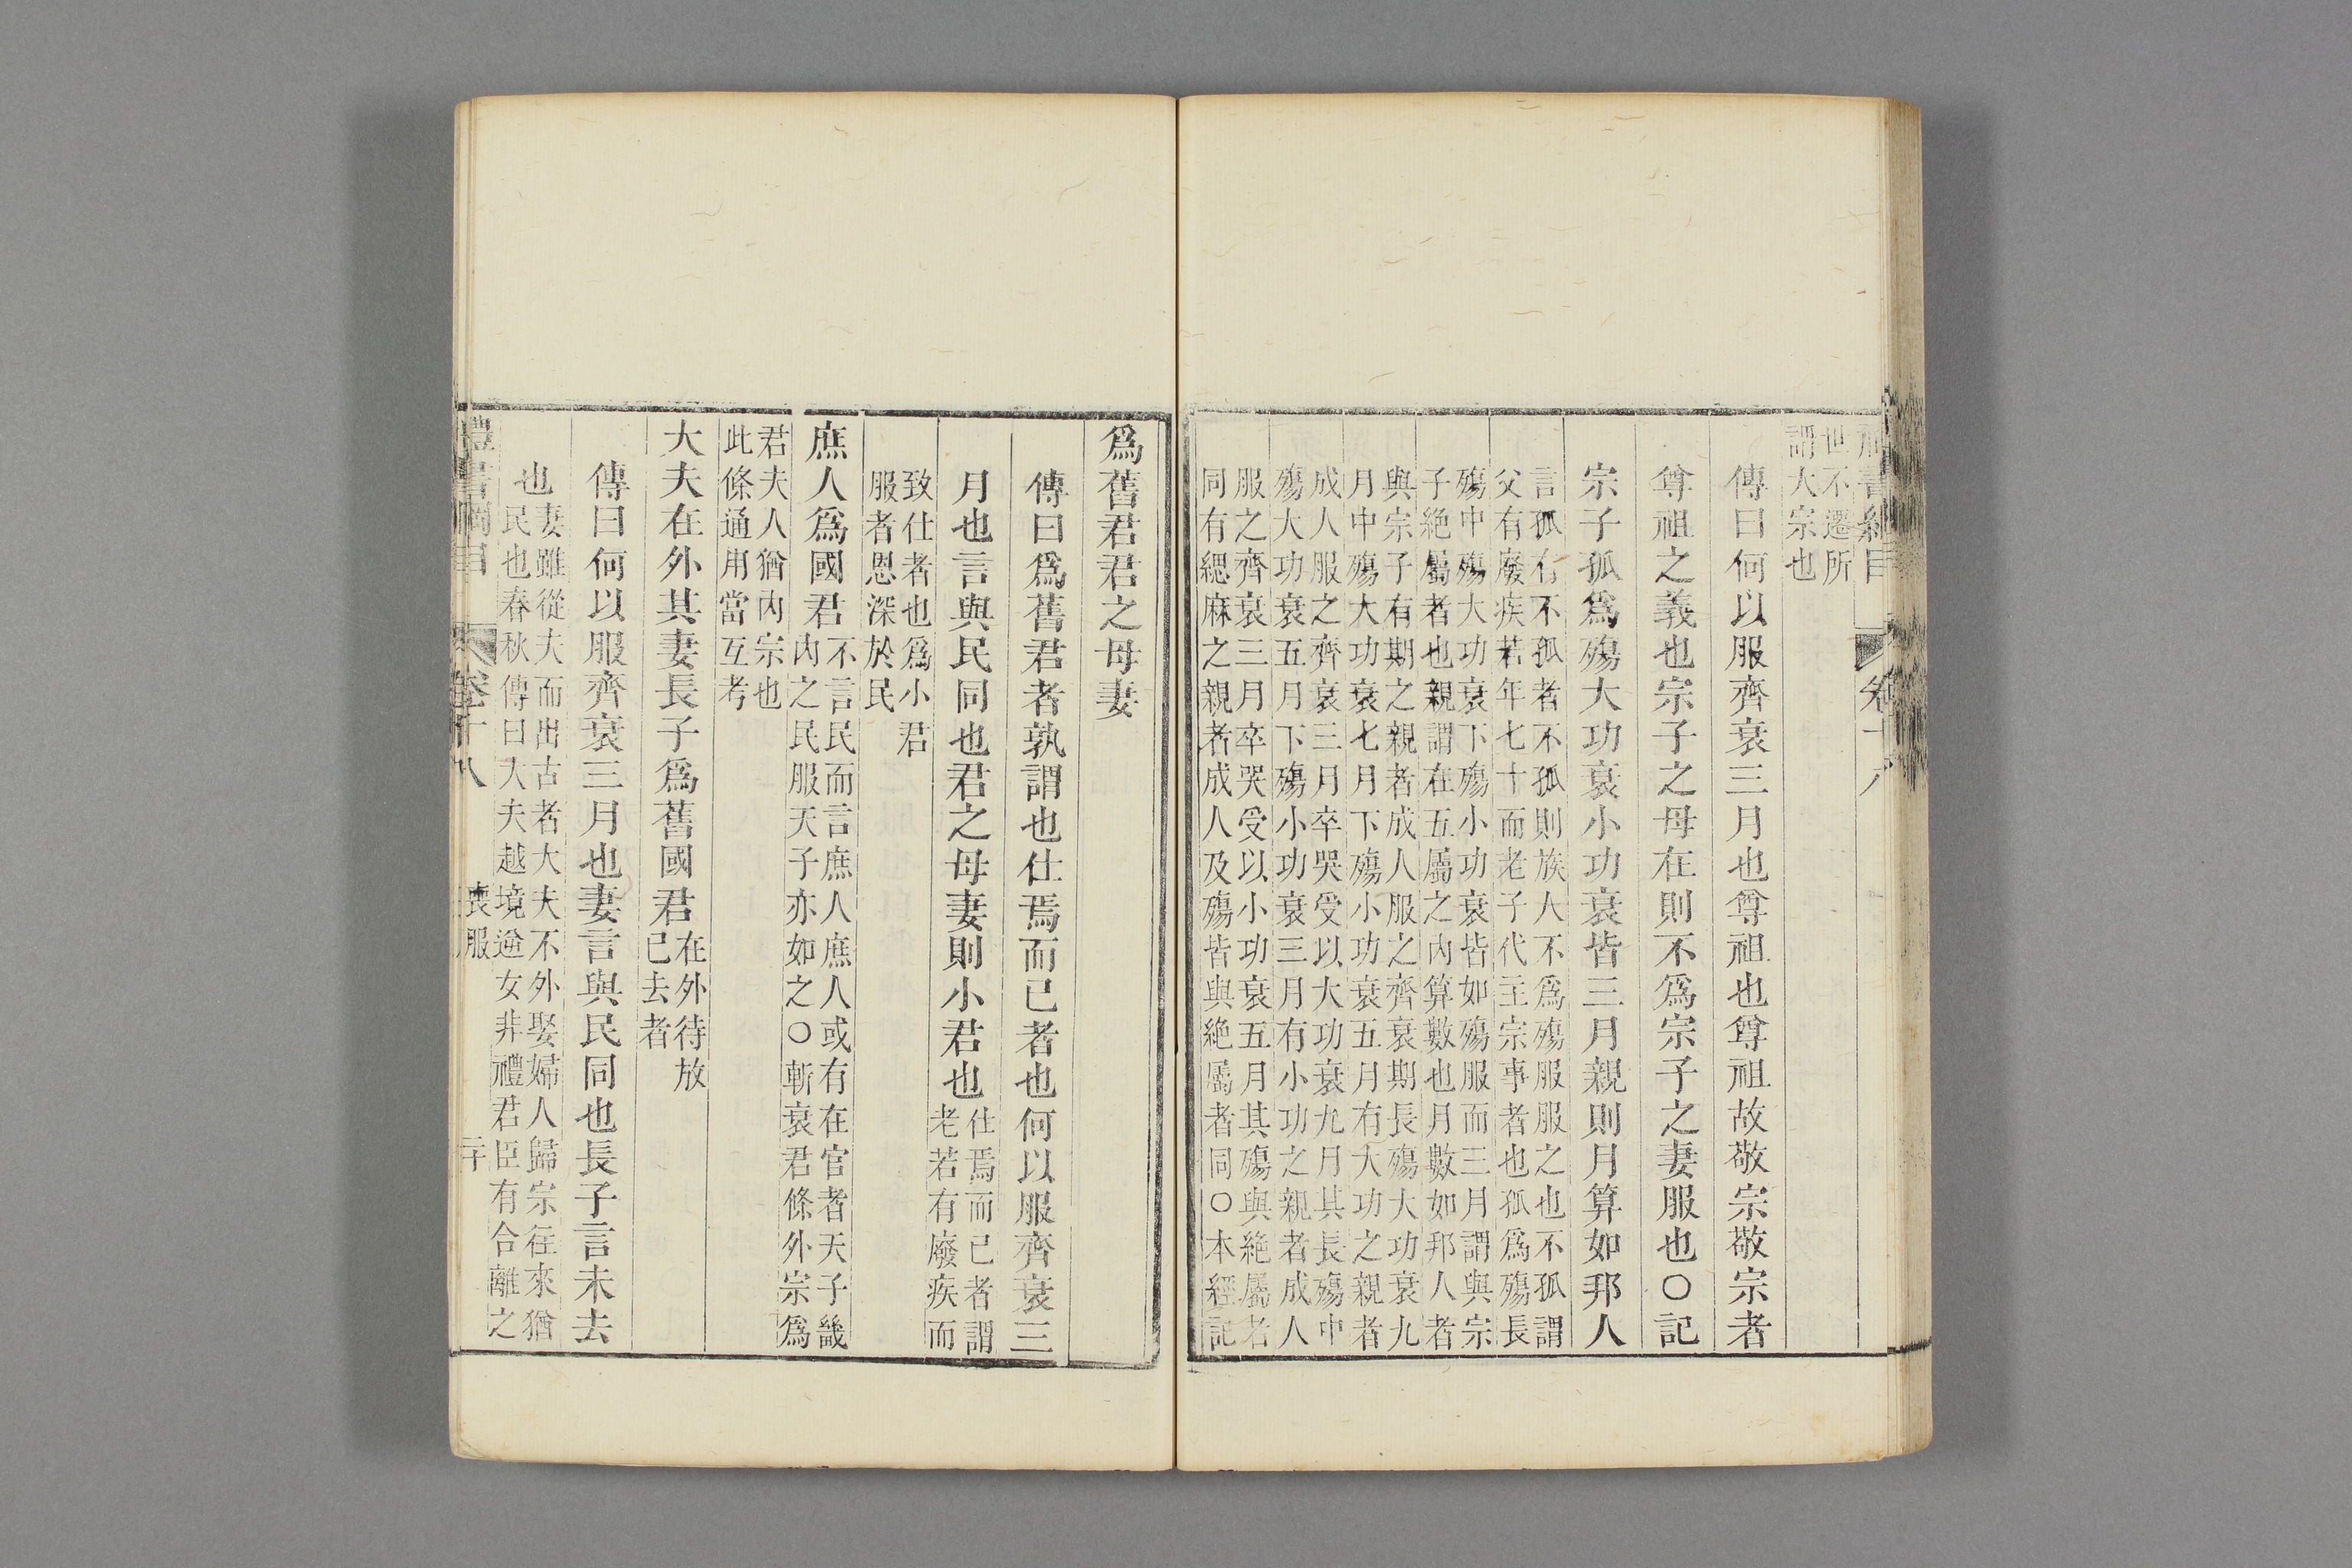 世不遷所
謂大宗也
傳曰何以服齊衰三月也尊祖也尊祖故敬宗敬宗者
尊祖之義也宗子之母在則不爲宗子之妻服也○記
宗子孤爲殤大功衰小功衰皆三月親則月算如邦人
言孤有不孤者不孤則族人不爲殤服服之也不孤謂
父有廢疾若年七十而老子代主宗事者也孤爲殤長
殤中殤大功衰下殤小功衰皆如殤服而三月謂與宗
子絶屬者也親謂在五屬之內算數也月數如邦人者
與宗子有期之親者成人服之齊衰期長殤大功衰九
月中殤大功衰七月下殤小功衰五月有大功之親者
成人服之齊衰三月卒哭受以大功衰九月其長殤中
殤大功衰五月下殤小功衰三月有小功之親者成人
服之齊衰三月卒哭受以小功衰五月其殤與絶屬者
同有緦麻之親者成人及殤皆與絶屬者同○本經記
爲舊君君之母妻
傳曰爲舊君者孰謂也仕焉而已者也何以服齊衰三
月也言與民同也君之母妻則小君也仕焉而已者謂
老若有廢疾而
致仕者也爲小君
服者恩深於民
庶人爲國君不言民而言庶人庶人或有在官者天子畿
內之民服天子亦如之○斬衰君條外宗爲
君夫人猶內宗也
此條通用當互考
大夫在外其妻長子爲舊國君在外待放
已去者
傳曰何以服齊衰三月也妻言與民同也長子言未去
也妻雖從夫而出古者大夫不外娶婦人歸宗往來猶
民也春秋傳曰大夫越境逆女非禮君臣有合離之
禮書綱目 卷十八 喪服 二十